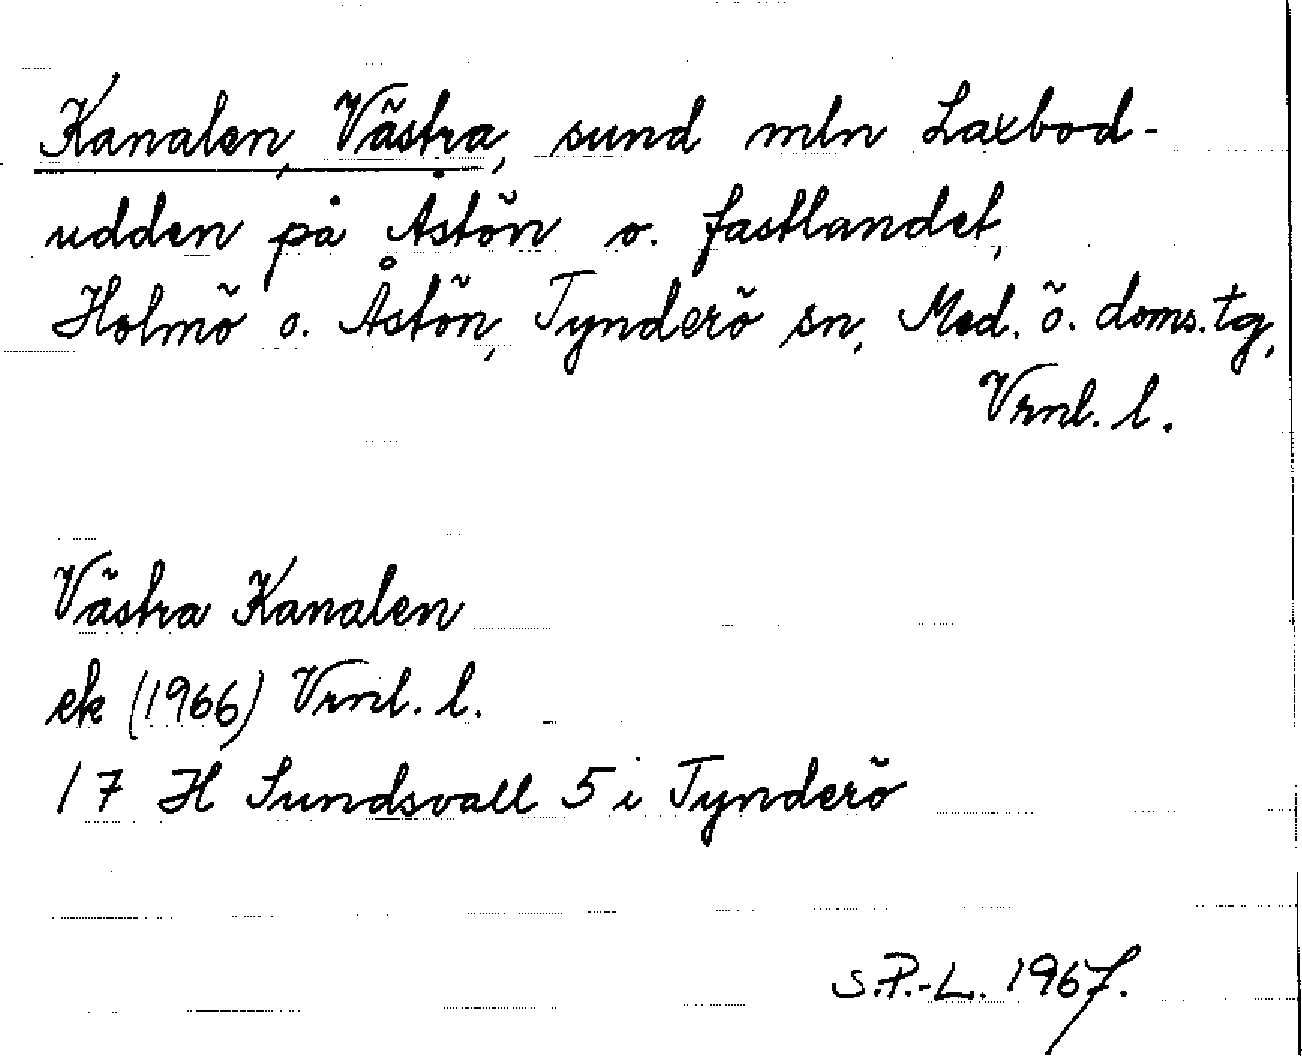 Kanalen, Västra, sund mln Laxbod-
udden på Åstön o. fastlandet,
Holmö o. Åstön, Tynderö sn, Med. ö. doms. tg,
Vrnl. l.
Västra Kanalen
ek (1966) Vrnl. l.
17 H Sundsvall 5 i Tynderö
S.P.-L. 1967.